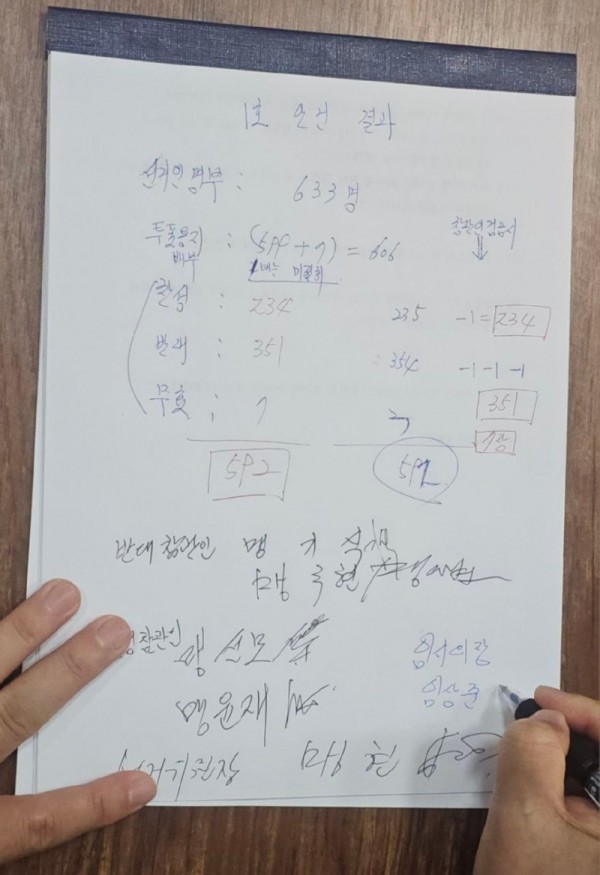 1호 안건 결과
선거인명부 : 633명
투표용지 배부 : (599 + 7) = 606
참관인 검증시
찬성 : 234 235 -1 = 234
반대 : 351 354 -1 -1 -1
351
무효 : 7
592 592
반대참관인 맹
맹 국현
참관인 맹선모
맹윤재
임시의장
임상준
선거위원장 맹 현